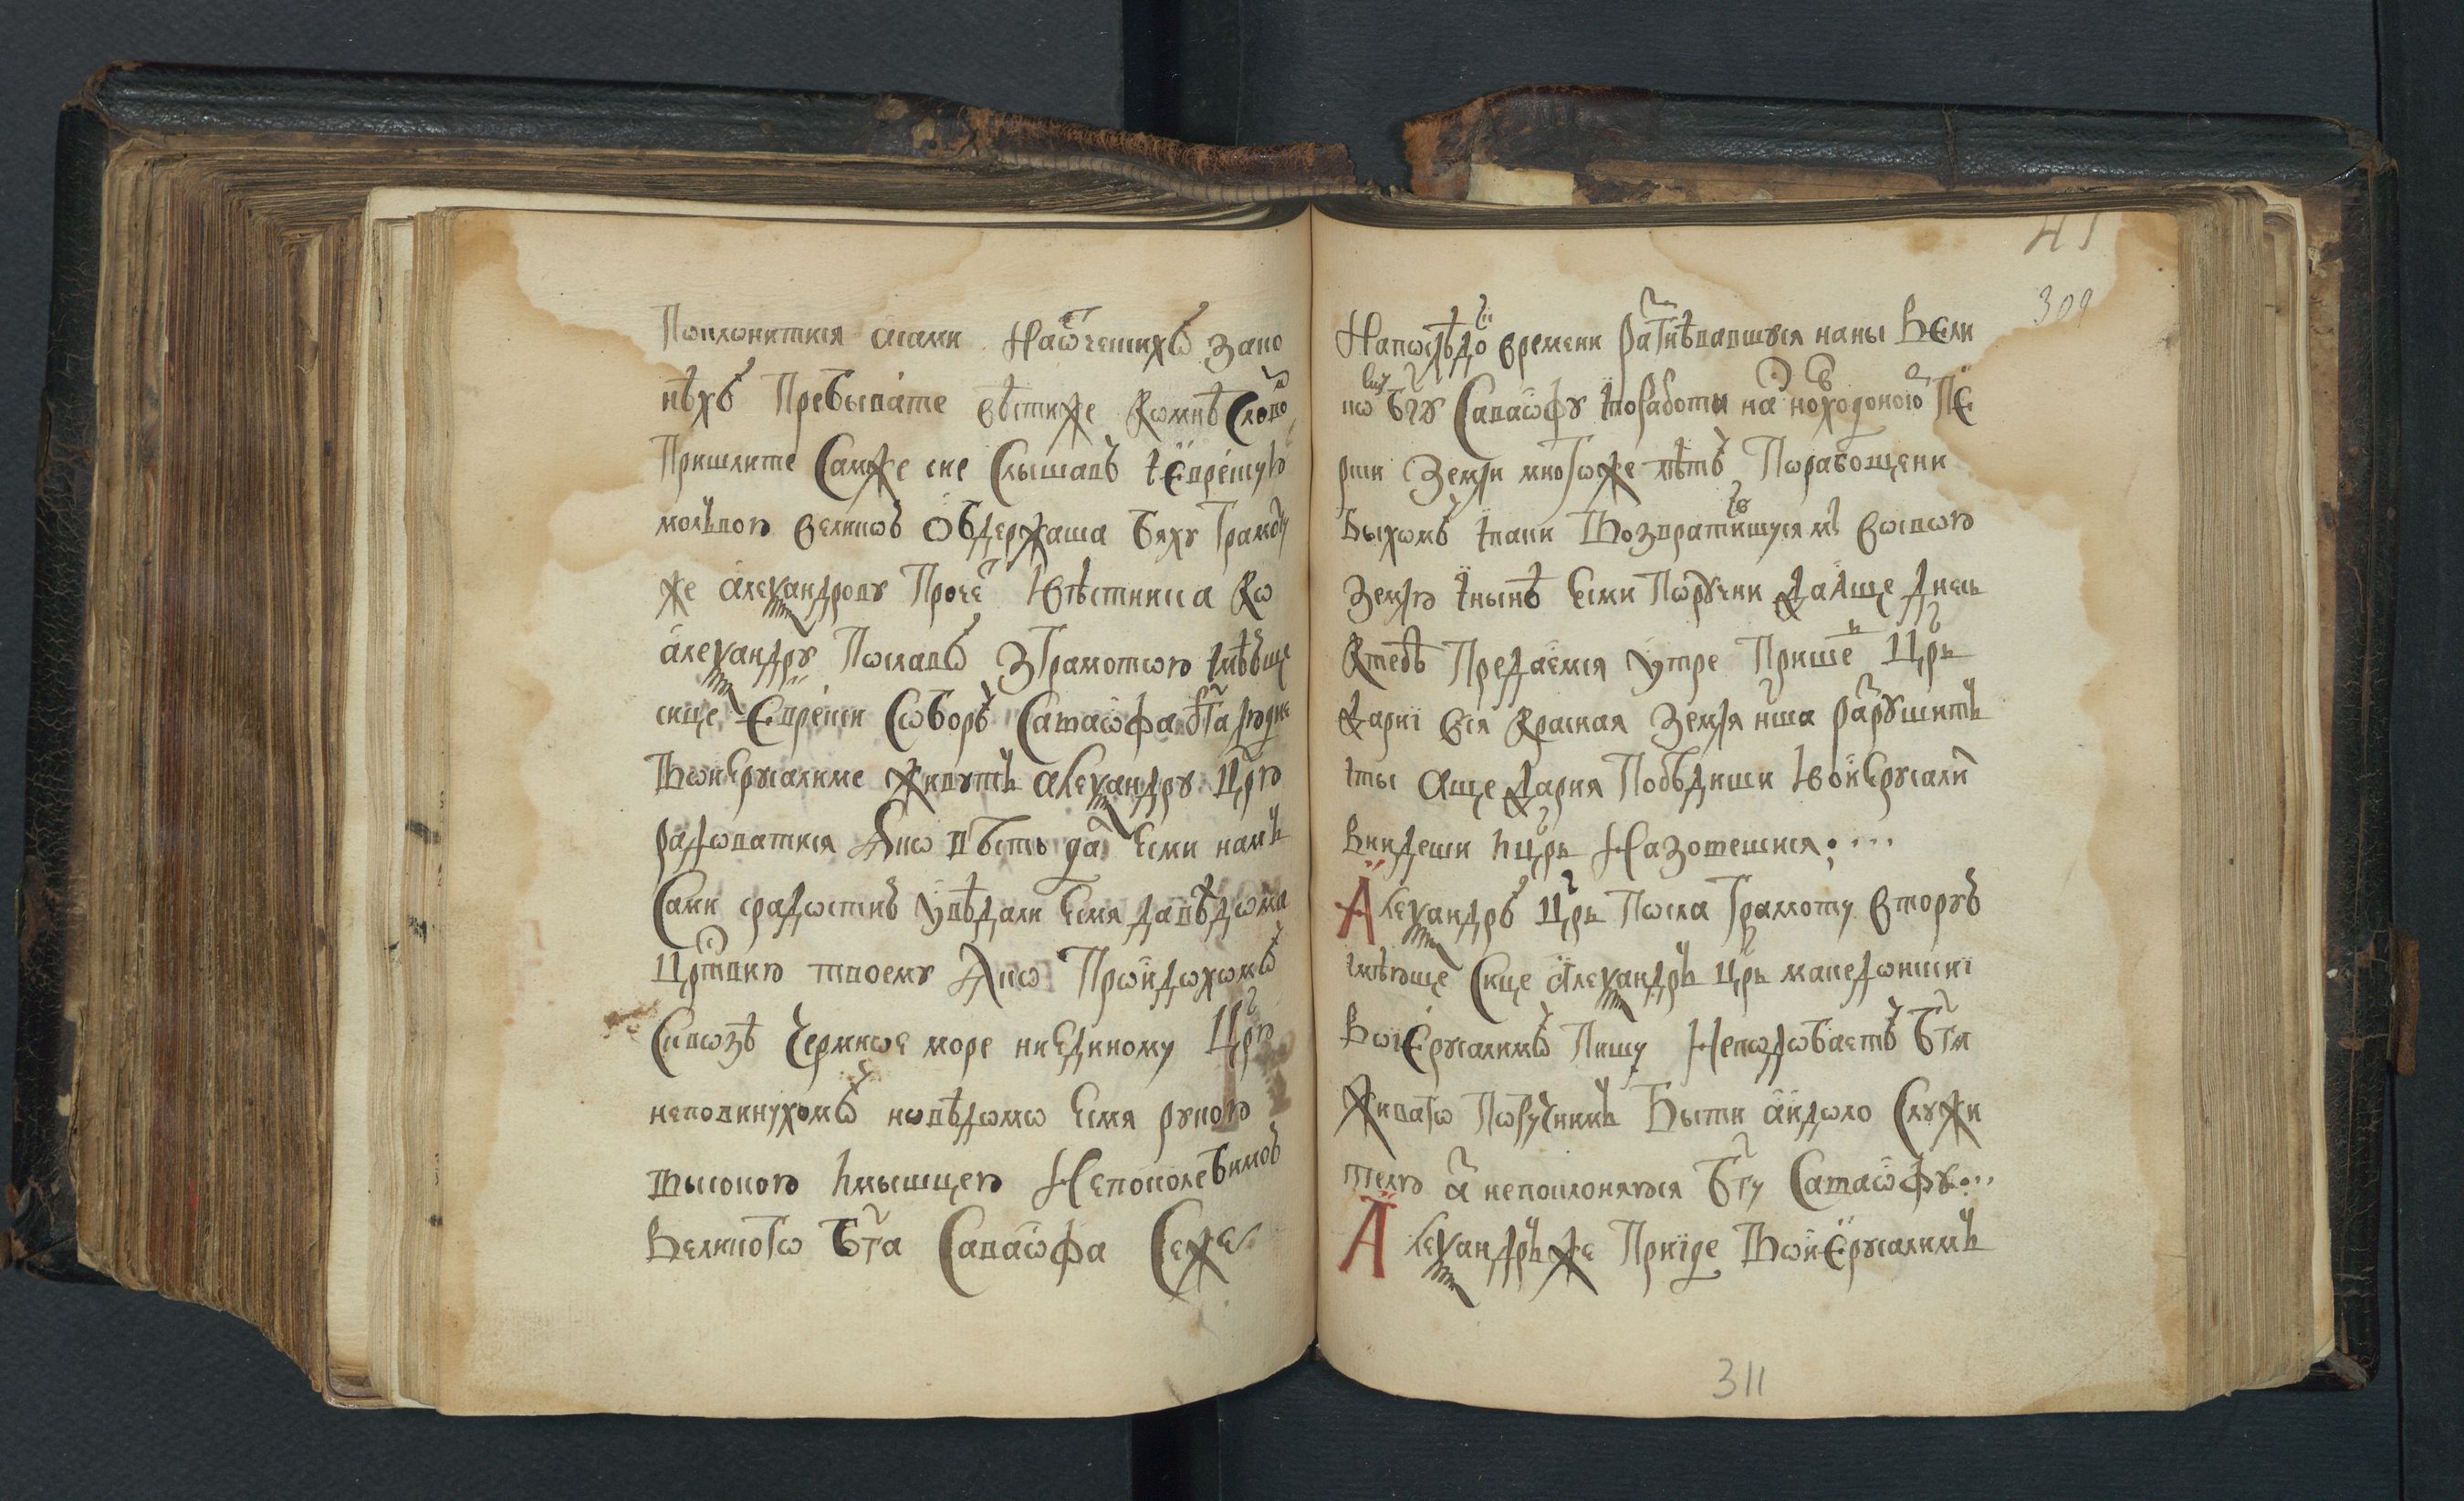 Поклонитися асами Наѡ҃ческихъ зако
нѣхъ Пребывайте вѣстиже Комнѣ Слово
Пришлите Самже сие Слышавъ іЕвреискꙋю
молъвою великоѣ Обдержаша бяхꙋ Грамотꙋ
же Алеѯандровꙋ Проче іВѣстника Ко
алеѯандрꙋ Пославъ ЗГрамотою имѣꙋще
сице Евреиски Соборъ Саваѡфа бг҃а людие
Воиерꙋсалиме живꙋтъ алеѯандрꙋ Црю҃
радоватися Ако вѣсть да еси намъ
Сами срадостиѣ Увѣдали есмя даведома
Црт҃вию твоемꙋ Ако Проидохомъ
Сквозѣ Чермное море ниединомꙋ Црю҃
неповинꙋхомъ новѣдомо есмя рꙋкою
высокою імышцею Непоколебимоѣ
Великого бг҃а Саваѡфа Сеже
41
309
Напослѣдокъ времени разгнѣвавшꙋся наны Вели
комꙋ бг҃ꙋ Саваѡфꙋ іпоработи на Пе
рси Земли многоже лѣтъ Порабощени
быхомъ іпаки Возвратившꙋся мъ восвою
Землю інынѣ есми Порꙋчни даАще днесь
Ктебѣ Предаемся Утре Прише Црь҃
дариї вся Красная Земля нша разрꙋшитъ
іты Аще дария Победиши івоиерꙋсалим
Внидеши іцрь҃ Назотешися:...
Алеѯандръ Црь҃ Посла Грамотꙋ вторꙋѣ
імѣюще Сице Алеѯандръ Црь҃ македонскиї
Воіерꙋсалимъ Пишꙋ Неподобаетъ бг҃а
живаго Порꙋчикъ Быти аидоло Слꙋжи
телю а непоклоняюся бг҃ꙋ Саваѡфꙋ:...
Алеѯандръже Приїде Воиерꙋсалимъ
311